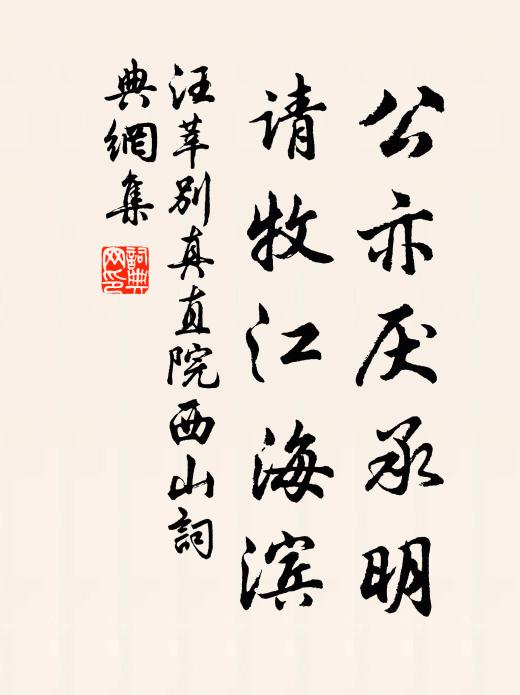 公亦厌承明
请牧江海滨
汪莘别真直院西山詞
典網集
詞典
网印